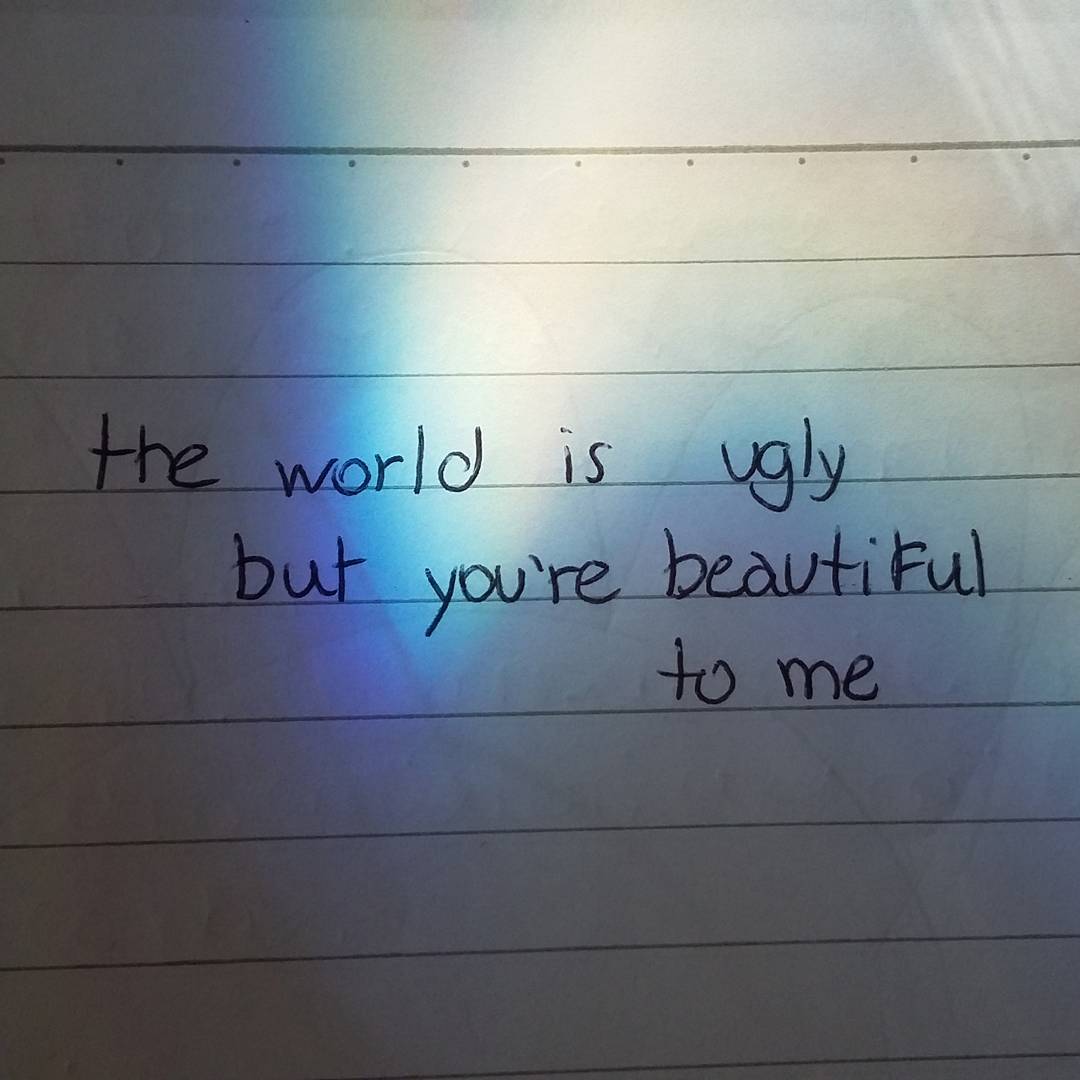 the world is ugly
but you're beautiful
to me